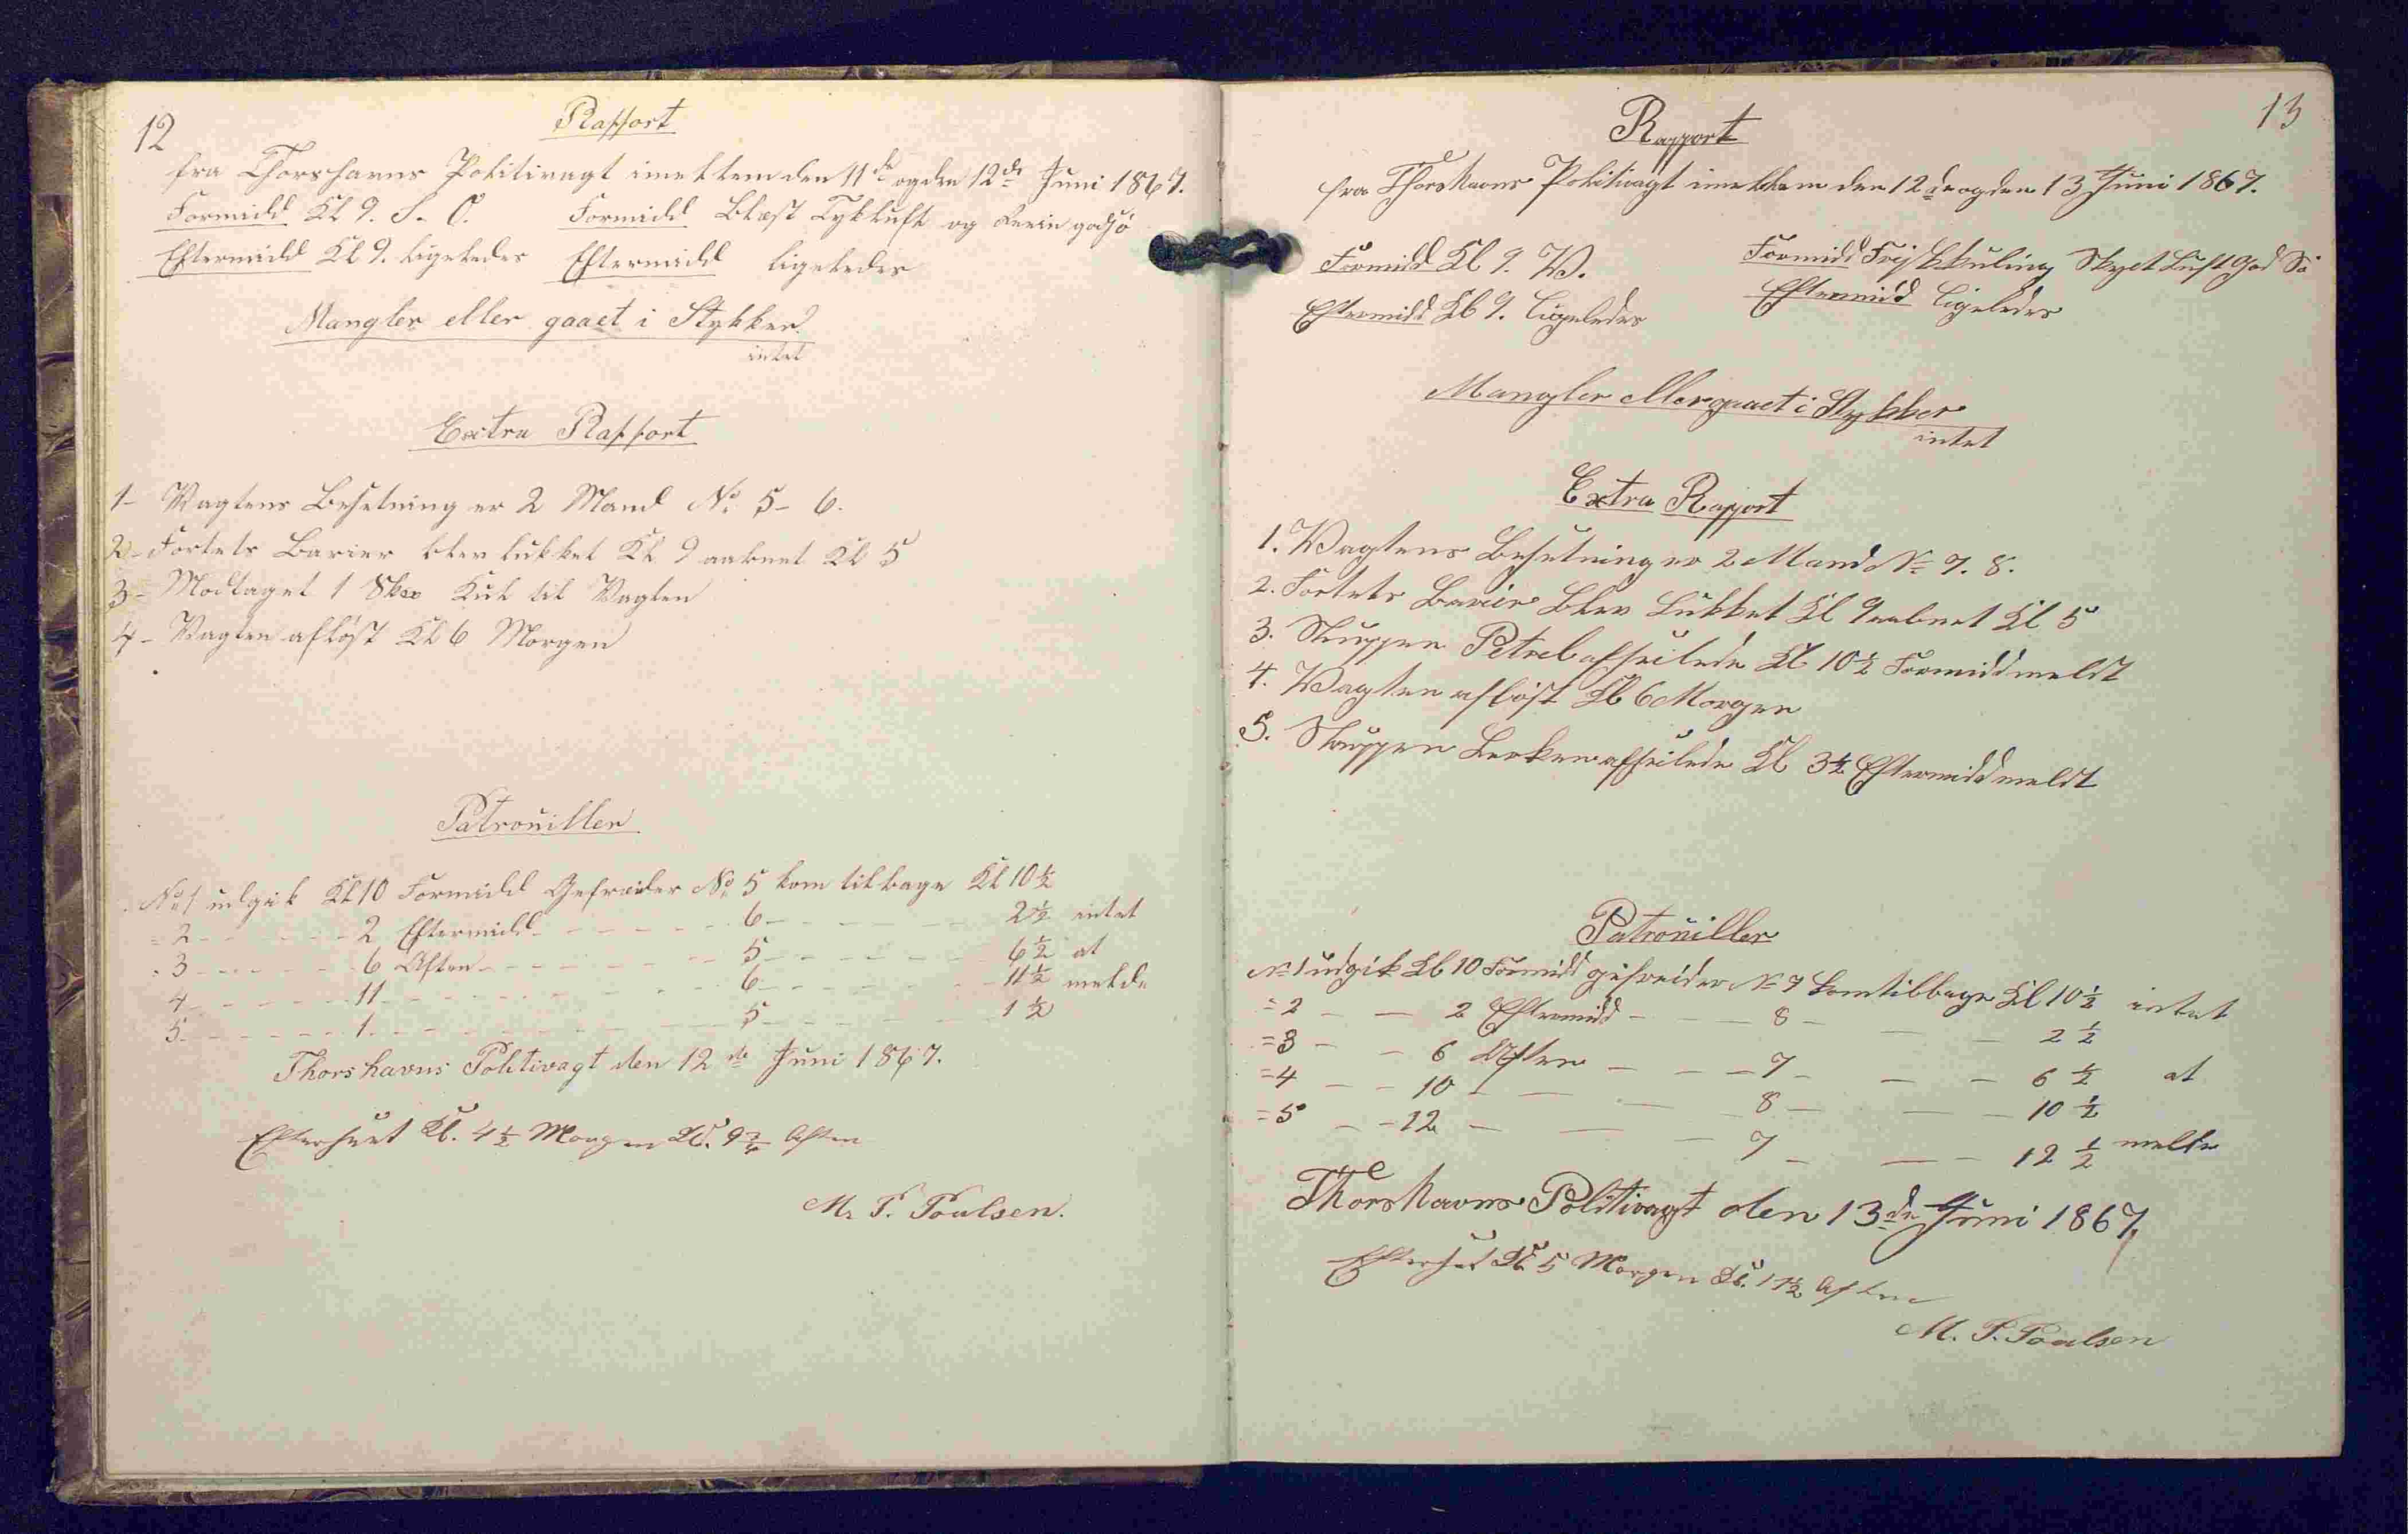 12
Rapport
fra Thorshavns Politivagt imellem den 11de og den 12de Juni 1867.
Formidd Kl 9. S.-O. Formidd Blæst Tykluft og Reein godsø
Eftermidd Kl 9. ligeledes Eftermidd ligeledes
Mangler eller gaaet i Stykker?
intet
Extra Rapport
1- Vagtens Besetning er 2 Mand No. 5- 6.
2- Fortets Barier blev lukket Kl 9 aabnet Kl 5
3- Modtaget 1 Kul til Vagten
4- Vagten afløst Kl 6 Morgen
Patrouiller
No 1 udgik Kl 10 Formidd Gefreider No 5 kom tilbage Kl 10½
= 2 - - - - 2 Eftermidd - - - - 6 - - - - 2½ intet
- 3 - - - - 6 Aften - - - - 5 - - - - 6½ at
4 - - - - 11 - - - - 6 - - - - 11½ melde
5 - - - - 1 - - - - 5 - - - - 1½
Thorshavns Politivagt den 12de Juni 1867.
Efterseet Kl. 4½ Morgen Kl. 9¾ Aften
M. P. Poulsen.
13
Rapport
fra Thorshavns Politivagt imellem den 12de og den 13 Juni 1867.
Formidd Kl 9. W. Formidd Frisk kuling Skyet Luft God Sø
Eftermidd Kl 9. Ligeledes Eftermidd Ligeledes
Mangler eller gaaet i Stykker
intet
Extra Rapport
1. Wagtens Besetning er 2 Mand No 7. 8.
2. Fortets Barier Blev Lukket Kl 9 aabnet Kl 5
3. Sluppen Petrel afseilede Kl 10½ Formidd meldt
4. Wagten afløst Kl 6 Morgen
5. Sluppen afseilede Kl 3½ Eftermidd meldt
Patrouiller
No 1 udgik Kl 10 Formidd gefreider No 7 kom tilbage Kl 10½ intet
= 2 - - 2 Eftermidd - - 8 - - - 2½
= 3 - - 6 Aften - - - 7 - - - 6½ at
= 4 - - 10 - - - 8 - - - 10½
= 5 - - 12 - - - 7 - - - 12½ melde
Thorshavns Politivagt den 13de Juni 1867.
Efterset Kl. 5 Morgen Kl. 11½ Aften
M. P. Poulsen